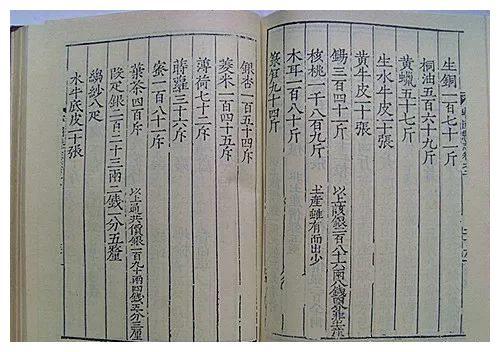 生銅一百七十一斤
桐油五百六十九斤
黄蠟五十七斤
生水牛皮二十張
黄牛皮二十張
錫三百四十斤 以上該銀二百八十六兩八錢
核桃一千八百九斤 土産雖有而出少
木耳一百八十斤
九十四斤
銀杏一百五十四斤
菱米一百四十五斤
薄荷七十二斤
蒔蘿三十六斤
蜜一百八十一斤
葉茶四百斤 以上通共價銀一百九十兩四錢五分三釐
段疋銀二百二十三兩二錢一分五釐
紗八疋
水牛底皮二十張